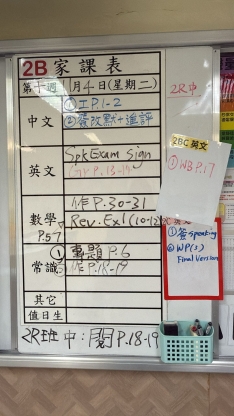 2B 家課表
第十週 月4日(星期二)
中文
①工P.1-2
②簽改默+進評
英文
Spk Exam Sign
Gr P.13-14
作P.30-31
數學
P.57
Rev. Ex1 (10-12)
常識
①專題P.6
作P.18-19
其它
值日生
2R班 中:閱P.18-19
2R中
2BC 英文
①WB P.17
①簽 Speaking
②WP(1)
Final Version